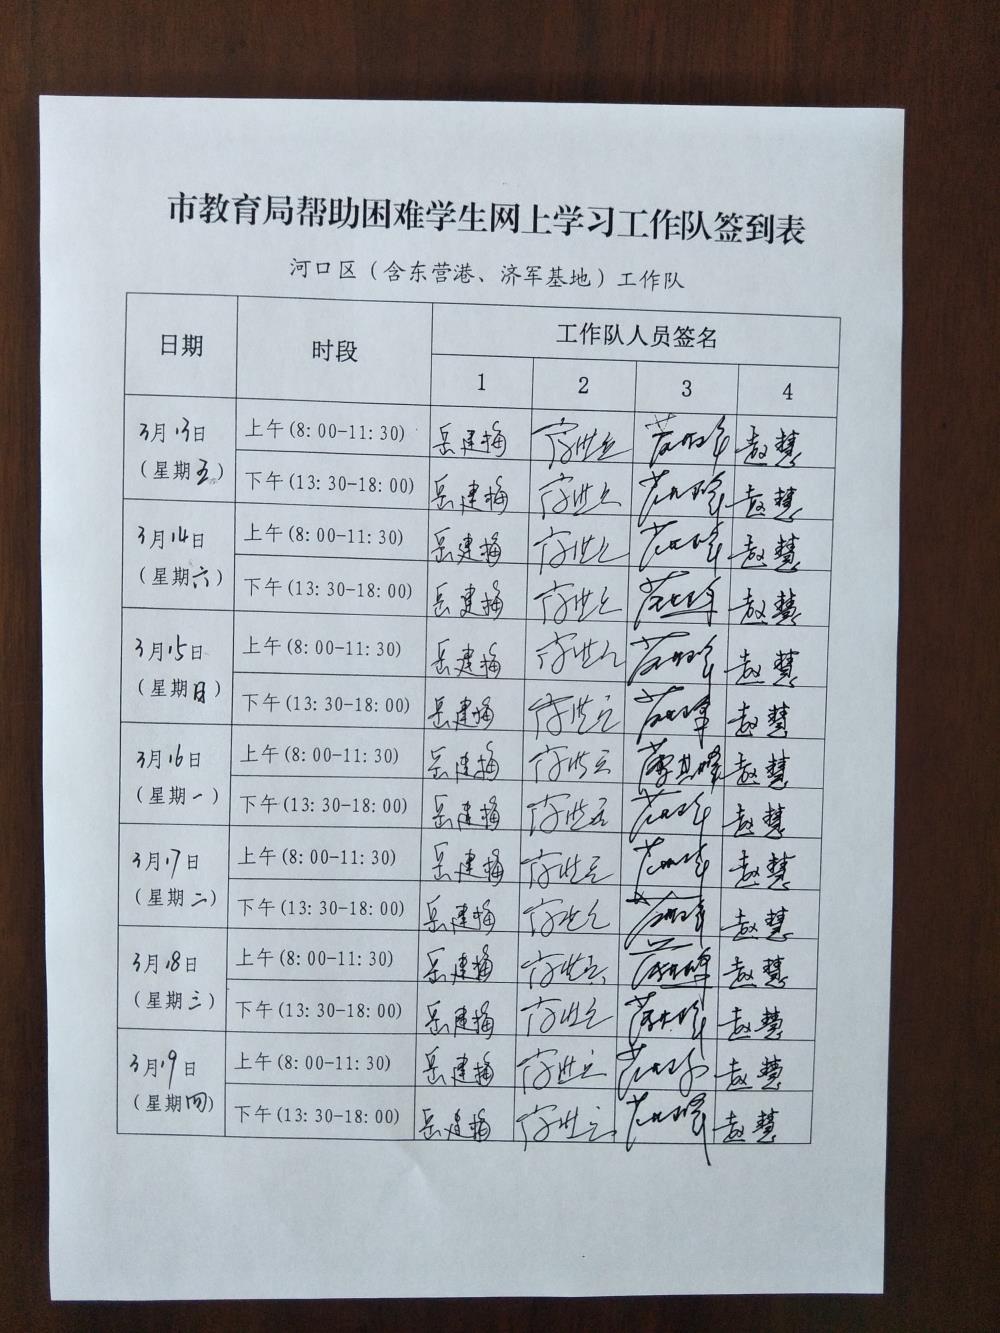 市教育局帮助困难学生网上学习工作队签到表
河口区（含东营港、济军基地）工作队
日期 时段 工作队人员签名
1 2 3 4
3月13日
（星期五）
上午(8:00-11:30) 岳建梅 赵慧
下午(13:30-18:00) 岳建梅 赵慧
3月14日
（星期六）
上午(8:00-11:30) 岳建梅 赵慧
下午(13:30-18:00) 岳建梅 赵慧
3月15日
（星期日）
上午(8:00-11:30) 岳建梅 赵慧
下午(13:30-18:00) 岳建梅 赵慧
3月16日
（星期一）
上午(8:00-11:30) 岳建梅 赵慧
下午(13:30-18:00) 岳建梅 赵慧
3月17日
（星期二）
上午(8:00-11:30) 岳建梅 赵慧
下午(13:30-18:00) 岳建梅 赵慧
3月18日
（星期三）
上午(8:00-11:30) 岳建梅 赵慧
下午(13:30-18:00) 岳建梅 赵慧
3月19日
（星期四）
上午(8:00-11:30) 岳建梅 赵慧
下午(13:30-18:00) 岳建梅 赵慧